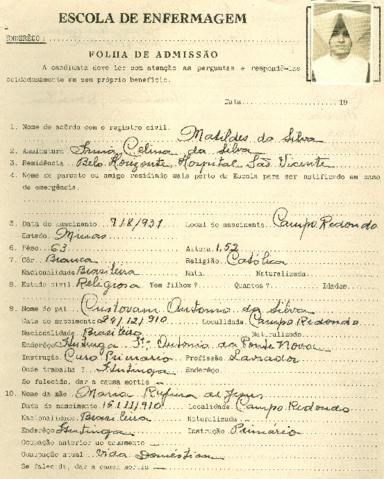 ESCOLA DE ENFERMAGEM
ENDERÊÇO:
FOLHA DE ADMISSÃO
A candidata deve ler com atenção as perguntas e respondê-las
cuidadosamente em seu próprio benefício.
Data 19
1. Nome de acôrdo com o registro civil. Matildes da Silva
2. Assinatura Irmã Celina da Silva
3. Residência Belo Horizonte, Hospital São Vicente
4. Nome do parente ou amigo residindo mais perto da Escola para ser notificado em caso
de emergência.
5. Data do nascimento 7/8/931 Local do nascimento Campo Redondo
Estado Minas
6. Pêso 63 Altura 1,52
7. Côr Branca Religião Católica
Nacionalidade Brasileira Nata Naturalizada
8. Estado civil Religiosa Tem filhos? Quantos? Idades
9. Nome do pai Cristovam Antonio da Silva
Data do nascimento 29/12/910 Localidade Campo Redondo
Nacionalidade Brasileiro Naturalizado
Enderêço Antonio da Ponte Nova
Instrução Curso Primario Profissão Lavrador
Onde trabalha? Enderêço
Se falecido, dar a causa mortis
10. Nome da mãe Maria Rufina de Jesus
Data do nascimento 15/11/910 Localidade Campo Redondo
Nacionalidade Brasileira Naturalizada
Enderêço Instrução Primario
Ocupação anterior ao casamento
Ocupação atual Vida Doméstica
Se falecida, dar a causa mortis